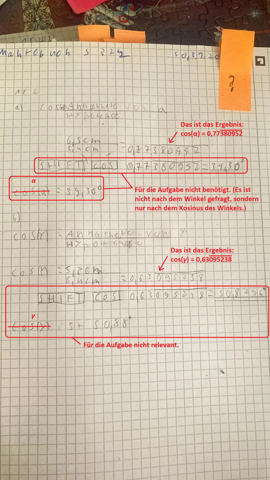 Mathebuch S 227
?
a) cos α = Ankathete von α
Hypotenuse
6,5cm
8,4cm = 0,77380952
Das ist das Ergebnis:
cos(α) = 0,77380952
SHIFT COS 0,77380952 = 39,30°
α
cos(α) = 39,30°
Für die Aufgabe nicht benötigt. (Es ist
nicht nach dem Winkel gefragt, sondern
nur nach dem Kosinus des Winkels.)
b)
cos(γ) = Ankathete von γ
Hypotenuse
Das ist das Ergebnis:
cos(γ) = 0,63095238
cos(γ) = 5,3cm
8,4cm = 0,63095238
SHIFT COS 0,63095238 = 50,88°
γ
50,88°
Für die Aufgabe nicht relevant.